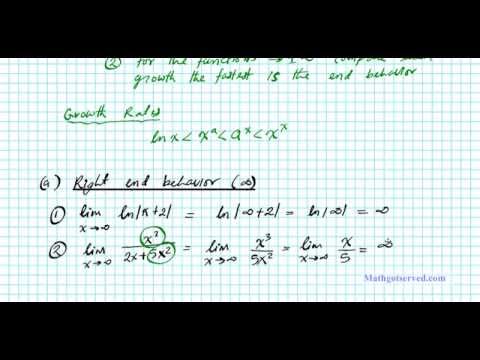 ② for the functions → ± ∞
growth the fastest is the end behavior
Growth Rates
ln x < xᵃ < aˣ < xˣ
(a) Right end behavior (∞)
① lim x→∞ ln|x+2| = ln|∞+2| = ln|∞| = ∞
② lim x→∞ x³/(2x+5x²) = lim x→∞ x³/5x² = lim x→∞ x/5 = ∞
Mathgotserved.com